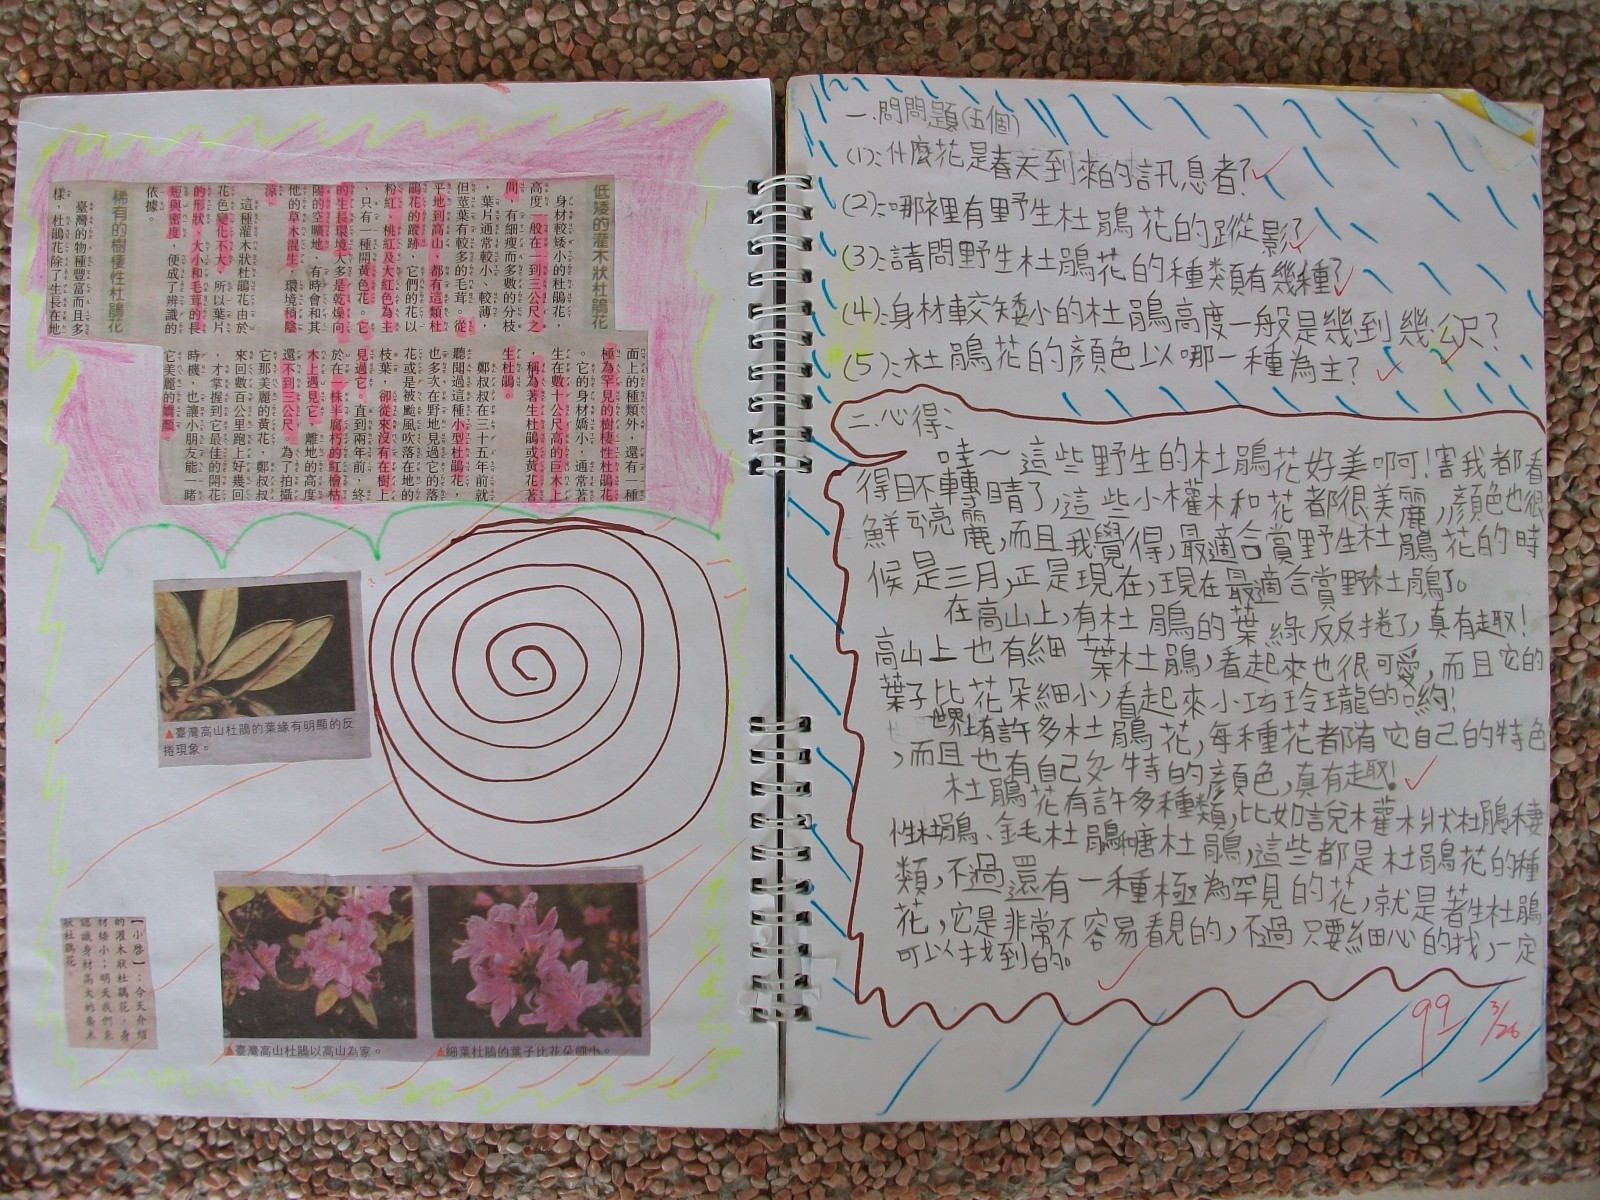 低矮的灌木狀杜鵑花
身材較矮小的杜鵑花，
高度一般在一到三公尺之
間，有細瘦而多數的分枝
，葉片通常較小、較薄，
但莖葉有較多的毛茸。從
平地到高山，都有這類杜
鵑花的蹤跡，它們的花以
粉紅、桃紅及大紅色為主
，只有一種開黃色花。它
的生長環境大多是乾燥向
陽的空曠地，有時會和其
他的草木混生，環境稍陰
涼。
這種灌木狀杜鵑花由於
花色變化不大，所以葉片
的形狀、大小和毛茸的長
短與密度，便成了辨識的
依據。
稀有的樹棲性杜鵑花
臺灣的物種豐富而且多
樣，杜鵑花除了生長在地
面上的種類外，還有一種
極為罕見的樹棲性杜鵑花
。它的身材嬌小，通常著
生在數十公尺高的巨木上
，稱為著生杜鵑或黃花著
生杜鵑。
鄭叔叔在三十五年前就
聽聞過這種小型杜鵑花，
也多次在野地見過它的落
花或是被颱風吹落在地的
枝葉，卻從來沒有在樹上
見過它。直到兩年前，終
於在一株半腐朽的紅檜枯
木上遇見它，離地的高度
還不到三公尺。為了拍攝
它那美麗的黃花，鄭叔叔
來回數百公里跑上好幾回
，才掌握到它最佳的開花
時機，也讓小朋友能一睹
它美麗的嬌顏。
▲臺灣高山杜鵑的葉緣有明顯的反
捲現象。
▲臺灣高山杜鵑以高山為家。
▲細葉杜鵑的葉子比花朵細小。
【小啓】：今天介紹
的灌木狀杜鵑花，身
材矮小；明天我們來
認識身材高大的喬木
狀杜鵑花。
一.問問題(五個)
(1):什麼花是春天到來的訊息者?
(2):哪裡有野生杜鵑花的蹤影?
(3):請問野生杜鵑花的種類有幾種?
(4):身材較矮小的杜鵑高度一般是幾到幾公尺?
(5):杜鵑花的顏色以哪一種為主?
二.心得:
哇~這些野生的杜鵑花好美啊!害我都看
得目不轉睛了,這些小權木和花都很美麗,顏色也很
鮮亮麗,而且我覺得,最適合賞野生杜鵑花的時
候是三月,正是現在,現在最適合賞野杜鵑了。
在高山上,有杜鵑的葉綠反反捲了,真有趣!
高山上也有細葉杜鵑,看起來也很可愛,而且它的
葉子比花朵細小,看起來小巧玲瓏的喲!
世界上有許多杜鵑花,每種花都有它自己的特色
,而且也有自己獨特的顏色,真有趣!
杜鵑花有許多種類,比如說權木狀杜鵑棲
性杜鵑、金毛杜鵑和唐杜鵑,這些都是杜鵑花的種
類,不過還有一種極為罕見的花,就是著生杜鵑
花,它是非常不容易看見的,不過只要細心的找,一定
可以找到的。
99
3/26